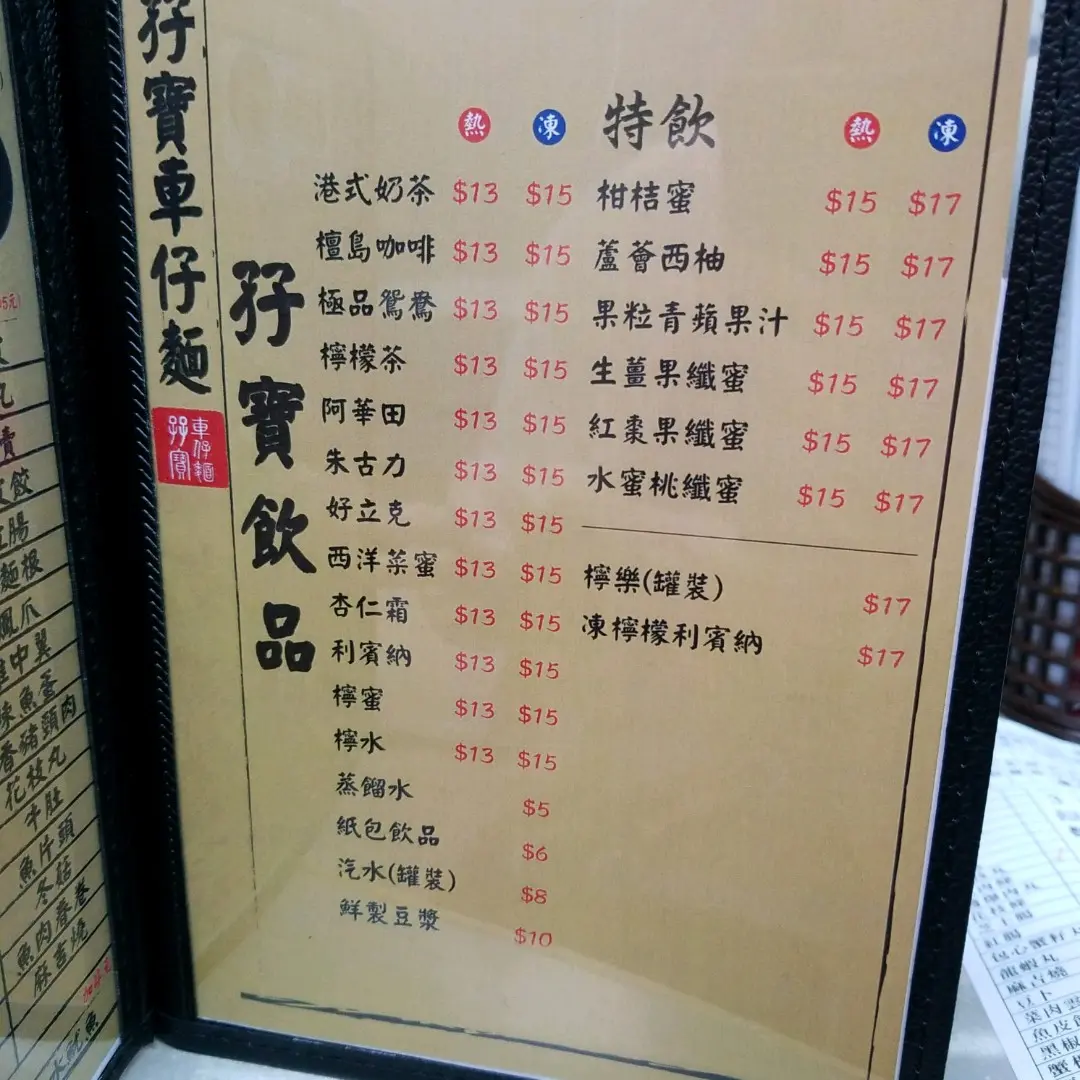 孖寶車仔麵
孖寶
車仔麵
孖寶飲品
熱 凍
港式奶茶 $13 $15
檀島咖啡 $13 $15
極品鴛鴦 $13 $15
檸檬茶 $13 $15
阿華田 $13 $15
朱古力 $13 $15
好立克 $13 $15
西洋菜蜜 $13 $15
杏仁霜 $13 $15
利賓納 $13 $15
檸蜜 $13 $15
檸水 $13 $15
蒸餾水 $5
紙包飲品 $6
汽水(罐裝) $8
鮮製豆漿 $10
特飲 熱 凍
柑桔蜜 $15 $17
蘆薈西柚 $15 $17
果粒青蘋果汁 $15 $17
生薑果纖蜜 $15 $17
紅棗果纖蜜 $15 $17
水蜜桃纖蜜 $15 $17
檸樂(罐裝) $17
凍檸檬利賓納 $17
麵根
鳳爪
中翼
魚蛋
豬頸肉
花枝丸
牛肚
魚片頭
冬菇
魚肉春卷
麻吉燒
魷魚
紅腸
包心蟹籽
龍蝦丸
麻吉燒
豆卜
菜肉
魚皮
黑椒
蟹